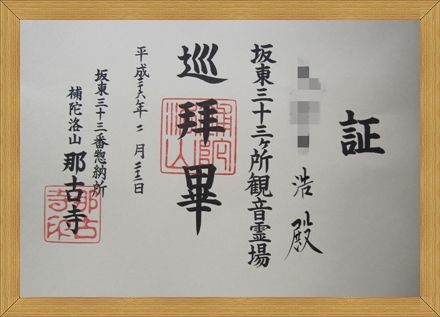 証
浩 殿
坂東三十三ヶ所観音霊場
巡拝畢
平成二十八年二月二十二日
坂東三十三番惣納所
補陀洛山 那古寺